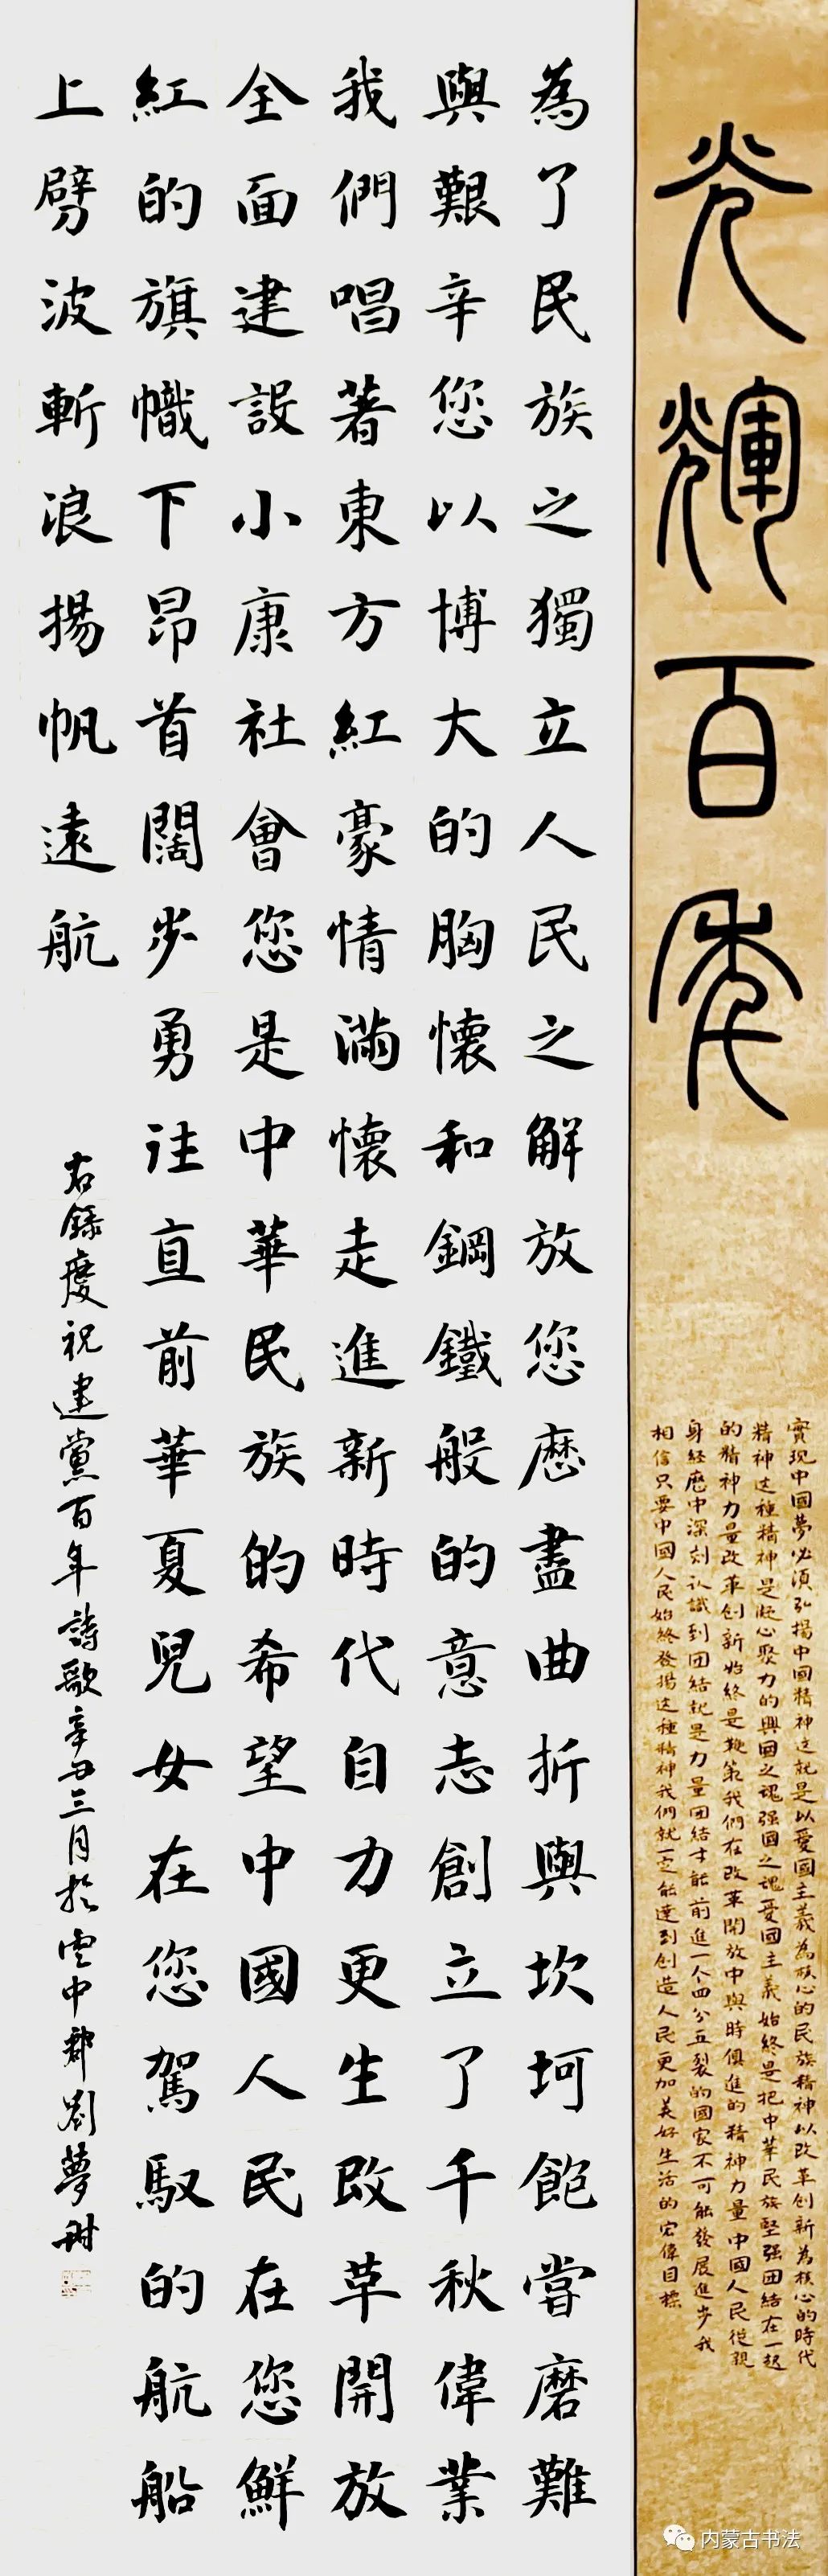 光輝百年
實現中國夢必須弘揚中國精神这就是以愛國主義為核心的民族精神以改革创新為核心的時代
精神这種精神是凝心聚力的興國之魂强國之魂愛國主義始終是把中華民族堅强团結在一起
的精神力量改革创新始終是鞭策我們在改革開放中與時俱進的精神力量中國人民從親
身经歷中深刻认識到团結就是力量团結才能前進一个四分五裂的國家不可能發展進步我
相信只要中國人民始終發揚这種精神我們就一定能達到创造人民更加美好生活的宏偉目標
為了民族之獨立人民之解放您歷盡曲折與坎坷飽嘗磨難
與艱辛您以博大的胸懷和鋼鐵般的意志創立了千秋偉業
我們唱著東方紅豪情滿懷走進新時代自力更生改革開放
全面建設小康社會您是中華民族的希望中國人民在您鮮
紅的旗幟下昂首闊步勇往直前華夏兒女在您駕馭的航船
上劈波斬浪揚帆遠航
右錄慶祝建黨百年詩歌辛丑三月於雲中郡劉夢
内蒙古书法